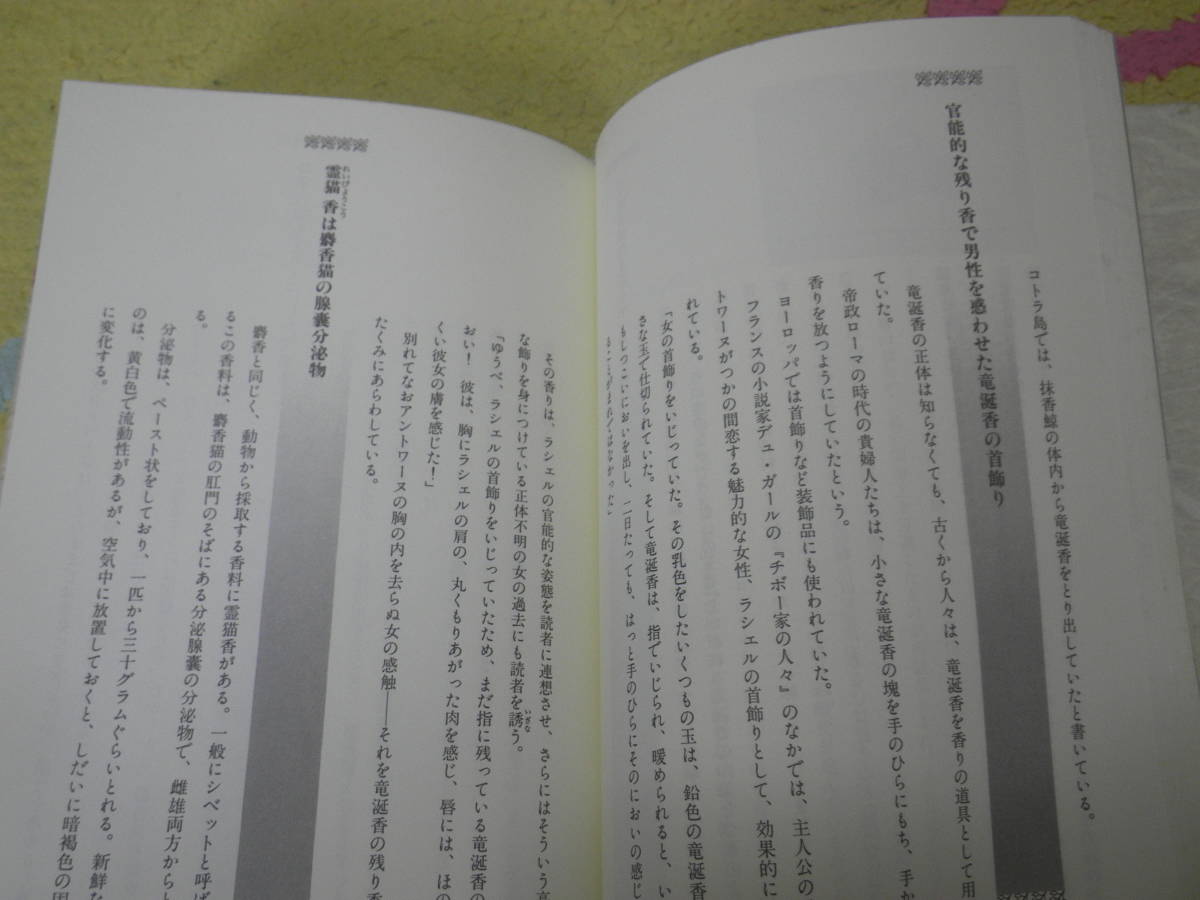 コトラ島では、抹香鯨の体内から竜涎香をとり出していたと書いている。
官能的な残り香で男性を惑わせた竜涎香の首飾り
竜涎香の正体は知らなくても、古くから人々は、竜涎香を香りの道具として用
ていた。
帝政ローマの時代の貴婦人たちは、小さな竜涎香の塊を手のひらにもち、手か
香りを放つようにしていたという。
ヨーロッパでは首飾りなど装飾品にも使われていた。
フランスの小説家デュ・ガールの『チボー家の人々』のなかでは、主人公の
トワーヌがつかの間恋する魅力的な女性、ラシェルの首飾りとして、効果的に
れている。
「女の首飾りをいじっていた。その乳色をしたいくつもの玉は、鉛色の竜涎香
さな玉で仕切られていた。そして竜涎香は、指でいじられ、暖められると、い
もしつこいにおいを出し、二日たっても、はっと手のひらにそのにおいの感じ
その香りは、ラシェルの官能的な姿態を読者に連想させ、さらにはそういう高
な飾りを身につけている正体不明の女の過去にも読者を誘う。
いざな
「ゆうべ、ラシェルの首飾りをいじっていたため、まだ指に残っている竜涎香の
おい！　彼は、胸にラシェルの肩の、丸くもりあがった肉を感じ、唇には、ほの
くい彼女の膚を感じた！」
別れてなおアントワーヌの胸の内を去らぬ女の感触――それを竜涎香の残り香
たくみにあらわしている。
霊猫香は麝香猫の腺嚢分泌物
れいびょうこう
麝香と同じく、動物から採取する香料に霊猫香がある。一般にシベットと呼ば
るこの香料は、麝香猫の肛門のそばにある分泌腺嚢の分泌物で、雌雄両方から
る。
分泌物は、ペースト状をしており、一匹から三十グラムぐらいとれる。新鮮な
のは、黄白色で流動性があるが、空気中に放置しておくと、しだいに暗褐色の固
に変化する。